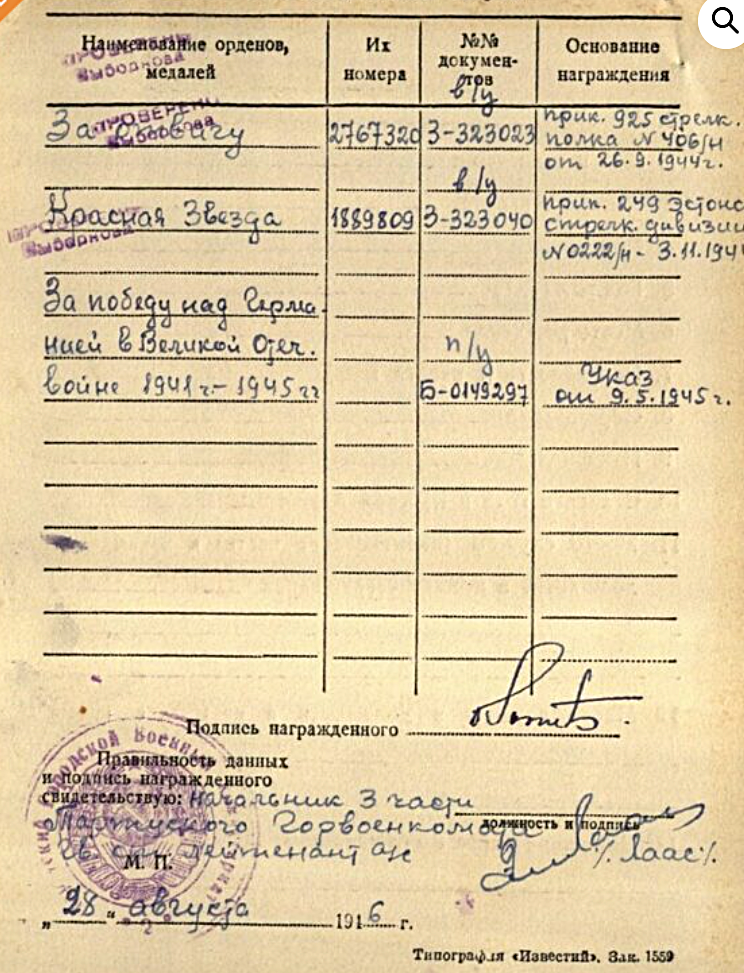 Наименование орденов, медалей
Их номера
№№ докумен-тов
Основание награждения
ПРОВЕРЕНО
Выборнова
За отвагу
2767320
в/у
З-323023
прик. 925 стрелк.
полка N 406/н
от 26.9.1944г.
ПРОВЕРЕНО
Выборнова
Красная Звезда
1889809
в/у
З-323040
прик. 249 Эстонс
стрелк. дивизии
N0222/н - 3.11.194
За победу над Герма-
нией в Великой Отеч.
войне 1941 г.-1945 гг
п/у
Б-0149297
Указ
от 9.5.1945 г.
Подпись награжденного
Правильность данных
и подпись награжденного
свидетельствую: Начальник 3 части
Тартуского Горвоенкомата
должность и подпись
гв. ст. лейтенант а/с
/. Лаас./
М. П.
„28“ августа 1946 г.
Типография «Известий». Зак. 1559